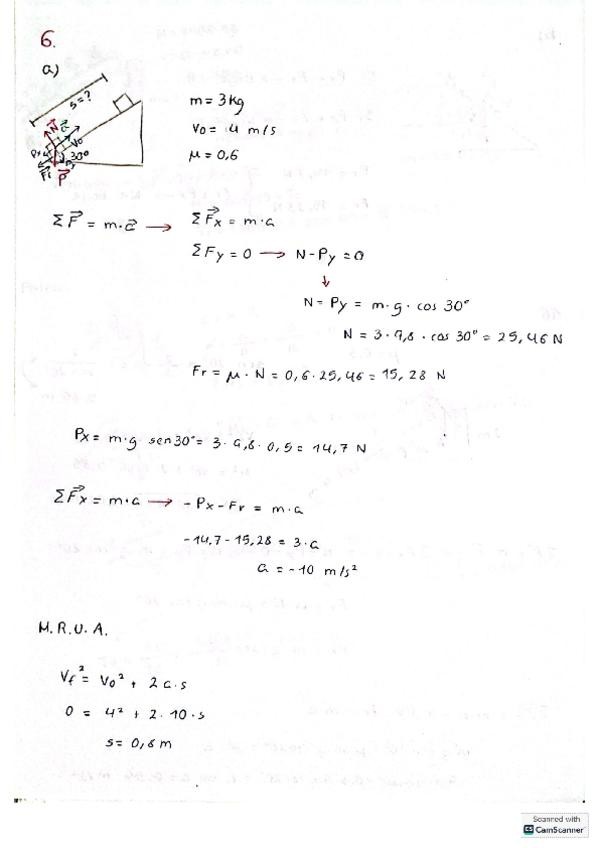 6.
a)
s=?
N a
Vo
Px
30°
Fr
P
m = 3 kg
Vo = 4 m/s
μ = 0,6
ΣF = m·a → ΣFx = m·a
ΣFy = 0 → N-Py = 0
↓
N = Py = m·g·cos 30°
N = 3·9,8·cos 30° = 25,46 N
Fr = μ·N = 0,6·25,46 = 15,28 N
Px = m·g sen30° = 3·9,8·0,5 = 14,7 N
ΣFx = m·a → -Px-Fr = m·a
-14,7-15,28 = 3·a
a = -10 m/s²
M.R.U.A.
Vf² = Vo² + 2a·s
0 = 4² + 2·10·s
s = 0,8 m
Scanned with
CS CamScanner